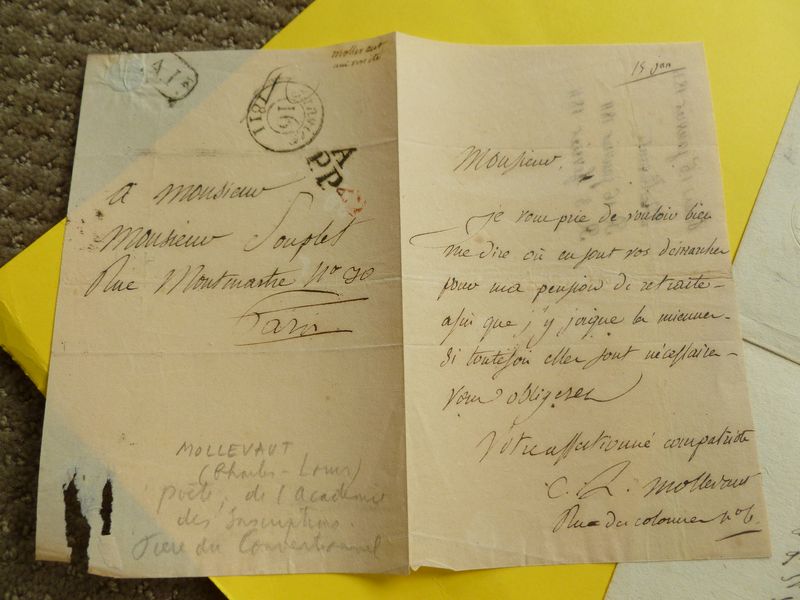 A.1
1811
16
A
P.P.
A monsieur
monsieur Souplet
Rue Montmartre No 90
Paris
MOLLEVAUT
(Charles-Louis)
poète, de l'Academie
des Inscriptions.
frère du Conventionnel
15 jan
Monsieur.
je vous prie de vouloir bien
me dire où en sont vos démarches
pour ma pension de retraite
afin que j'y joigne les miennes
si toutefois elles sont nécessaires
vous obligerez
Votre affectionné compatriote
C. L. Mollevaut
Rue du colombier no 6.